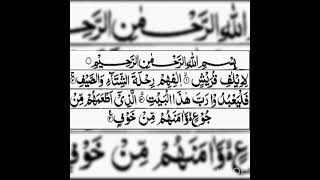 اللهِ الرَّحْمٰنِ الرَّحِ
بِسْمِ اللهِ الرَّحْمٰنِ الرَّحِيْمِ
لِاِیْلٰفِ قُرَیْشٍ ۙ اٖلٰفِهِمْ رِحْلَةَ الشِّتَآءِ وَالصَّیْفِ ۚ
فَلْیَعْبُدُوْا رَبَّ هٰذَا الْبَیْتِ ۙ الَّذِیْۤ اَطْعَمَهُمْ مِّنْ
جُوْعٍ ۙ وَّاٰمَنَهُمْ مِّنْ خَوْفٍ ۠
وَّاٰمَنَهُمْ مِّنْ خَوْفٍ